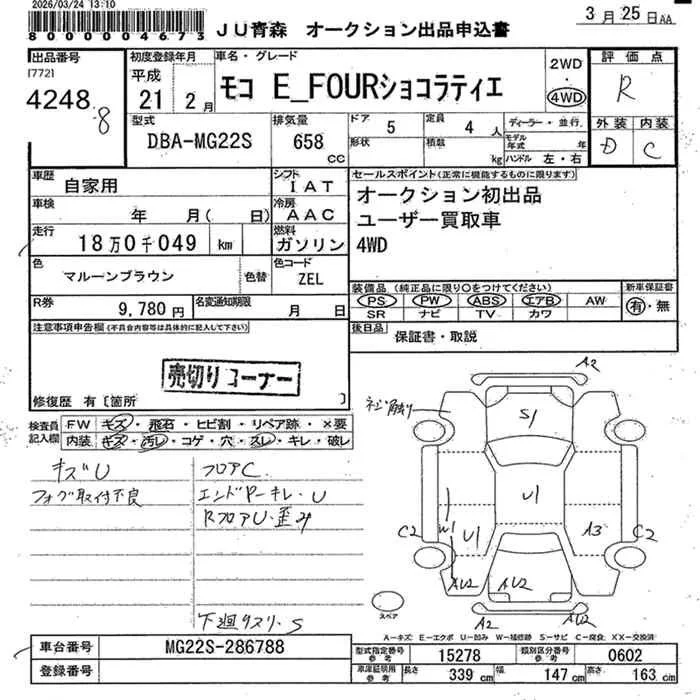 2026/03/24 13:10
800004673
JU青森 オークション出品申込書
3月25日AA
出品番号
[772]
4248
8
初度登録年月
平成
21 2月
車名・グレード
モコ E_FOURショコラティエ
2WD
・
4WD
評価点
R
外装 内装
D C
型式
DBA-MG22S
排気量
658
cc
ドア 5
定員 4 人
形状
積載 kg
ディーラー・並行
モデル年式 年
ハンドル 左・右
車歴
自家用
シフト
IAT
車検
年 月( 日)
冷房
AAC
走行
18万0千049 km
燃料
ガソリン
色
マルーンブラウン
色替
色コード
ZEL
R券
9,780円
名変通知期限
月 日
セールスポイント(正常に機能するものに限ります)
オークション初出品
ユーザー買取車
4WD
装備品 (純正品に限り○をつけてください)
新車保証書
PS PW ABS エアB AW
SR ナビ TV カワ
有・無
後日品
保証書・取説
注意事項申告欄(不具合内容等は具体的に記入して下さい)
売切りコーナー
修復歴 有〔箇所 〕
検査員
記入欄
FW キズ・飛石・ヒビ割・リペア跡・×要
内装 キズ・汚レ・コゲ・穴・スレ・キレ・破レ
キズU
フォグ取付不良
フロアC
エンドPーキレ・U
RフロアU・歪み
下廻リスリ・S
ネジ頭削り
A2
S1
U1
W1
U1
A3
C2
C2
AU2
AU2
A2
A2
スペア
A−キズ E−エクボ U−凹み W−補修跡 S−サビ C−腐食 XX−交換済
車台番号
MG22S-286788
登録番号
型式指定番号
参考
15278
類別区分番号
参考
0602
車庫証明用
参考
長さ 339 cm
幅 147 cm
高さ 163 cm